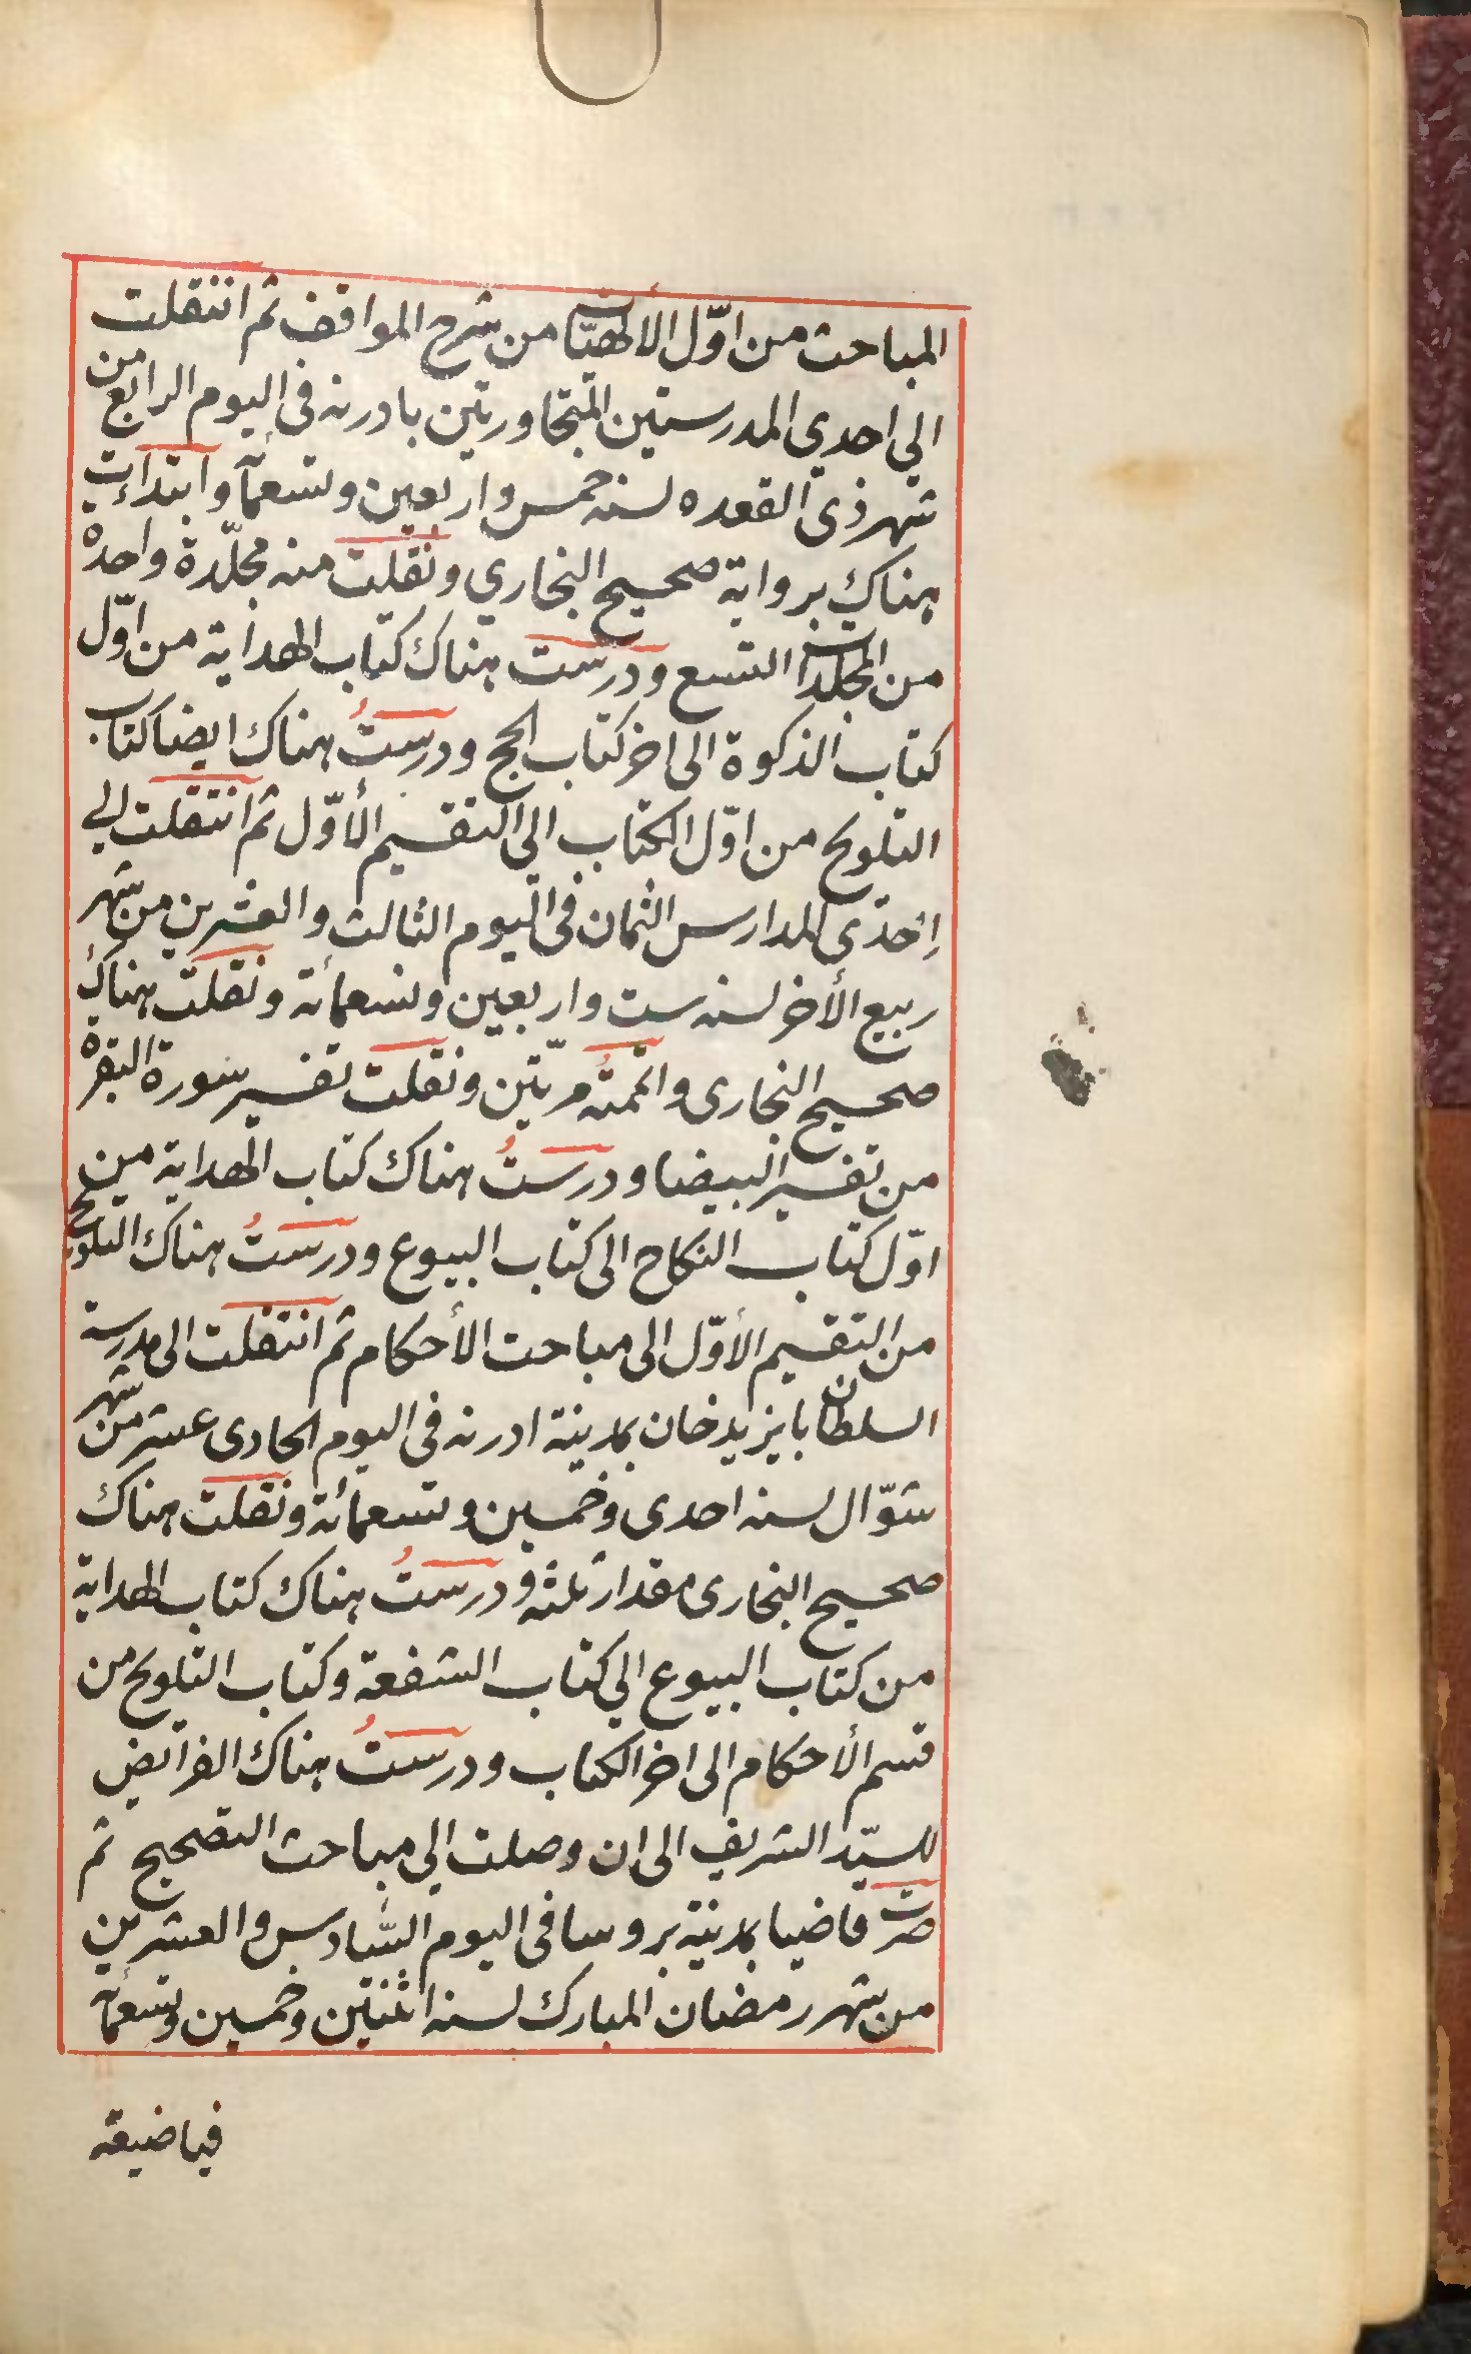 المباحث من اوّل الألهيّات من شرح المواقف ثم انتقلت
الي احدي المدرستين المتجاورتين بادرنه فى اليوم الرابع من
شهر ذى القعده لسنه خمس واربعين وتسعمآ وابتدأت
هناك برواية صحيح البخاري ونقلت منه مجلّدة واحدة
من المجلدات التسع ودرست هناك كتاب الهداية من اوّل
كتاب الذكوة الى اخر كتاب الحج ودرستُ هناك ايضا كتاب
التلويح من اوّل الكتاب الي التقسيم الأوّل ثم انتقلت الي
اِحدى المدارس الثمان فى اليوم الثالث والعشرين من شهر
ربيع الأخر لسنه ست واربعين وتسعمأئة ونقلت هناك
صحيح البخارى واتممتُه مرّتين ونقلت تفسير سورة البقرة
من تفسير البيضا ودرستُ هناك كتاب الهداية من
اوّل كتاب النكاح الى كتاب البيوع ودرستُ هناك التلويح
من التقسيم الأوّل الى مباحث الأحكام ثم انتقلت الى مدرسة
السلطان بايزيد خان بمدينة ادرنه فى اليوم الحادى عشر من شهر
شوّال لسنه احدى وخمسين وتسعمائة ونقلت هناك
صحيح البخارى مقدار ثلثه ودرستُ هناك كتاب الهداية
من كتاب البيوع الي كتاب الشفعة وكتاب التلويح من
قسم الأحكام الى اخر الكتاب ودرستُ هناك الفرائض
للسيّد الشريف الى ان وصلت الي مباحث التصحيح ثم
صرت قاضيا بمدينة بروسا فى اليوم السّادس والعشرين
من شهر رمضان المبارك لسنه اثنتين وخمسين وتسعمآ
فياضيعة